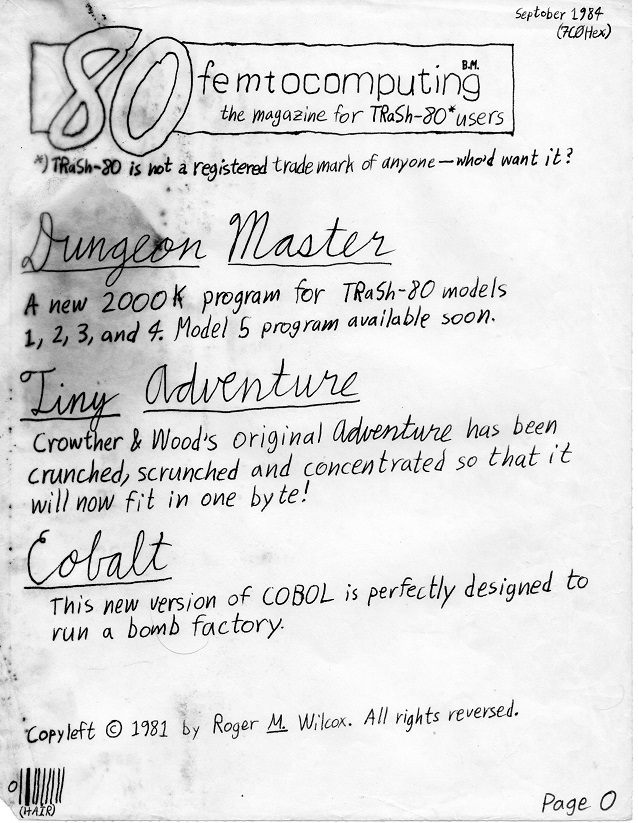 Septober 1984
(7C0 Hex)
80 femtocomputing B.M.
the magazine for TRaSh-80* users
*) TRaSh-80 is not a registered trade mark of anyone — who'd want it?
Dungeon Master
A new 2000K program for TRaSh-80 models
1, 2, 3, and 4. Model 5 program available soon.
Tiny Adventure
Crowther & Wood's original Adventure has been
crunched, scrunched and concentrated so that it
will now fit in one byte!
Cobalt
This new version of COBOL is perfectly designed to
run a bomb factory.
Copyleft © 1981 by Roger M. Wilcox. All rights reversed.
0
(HAIR)
Page 0